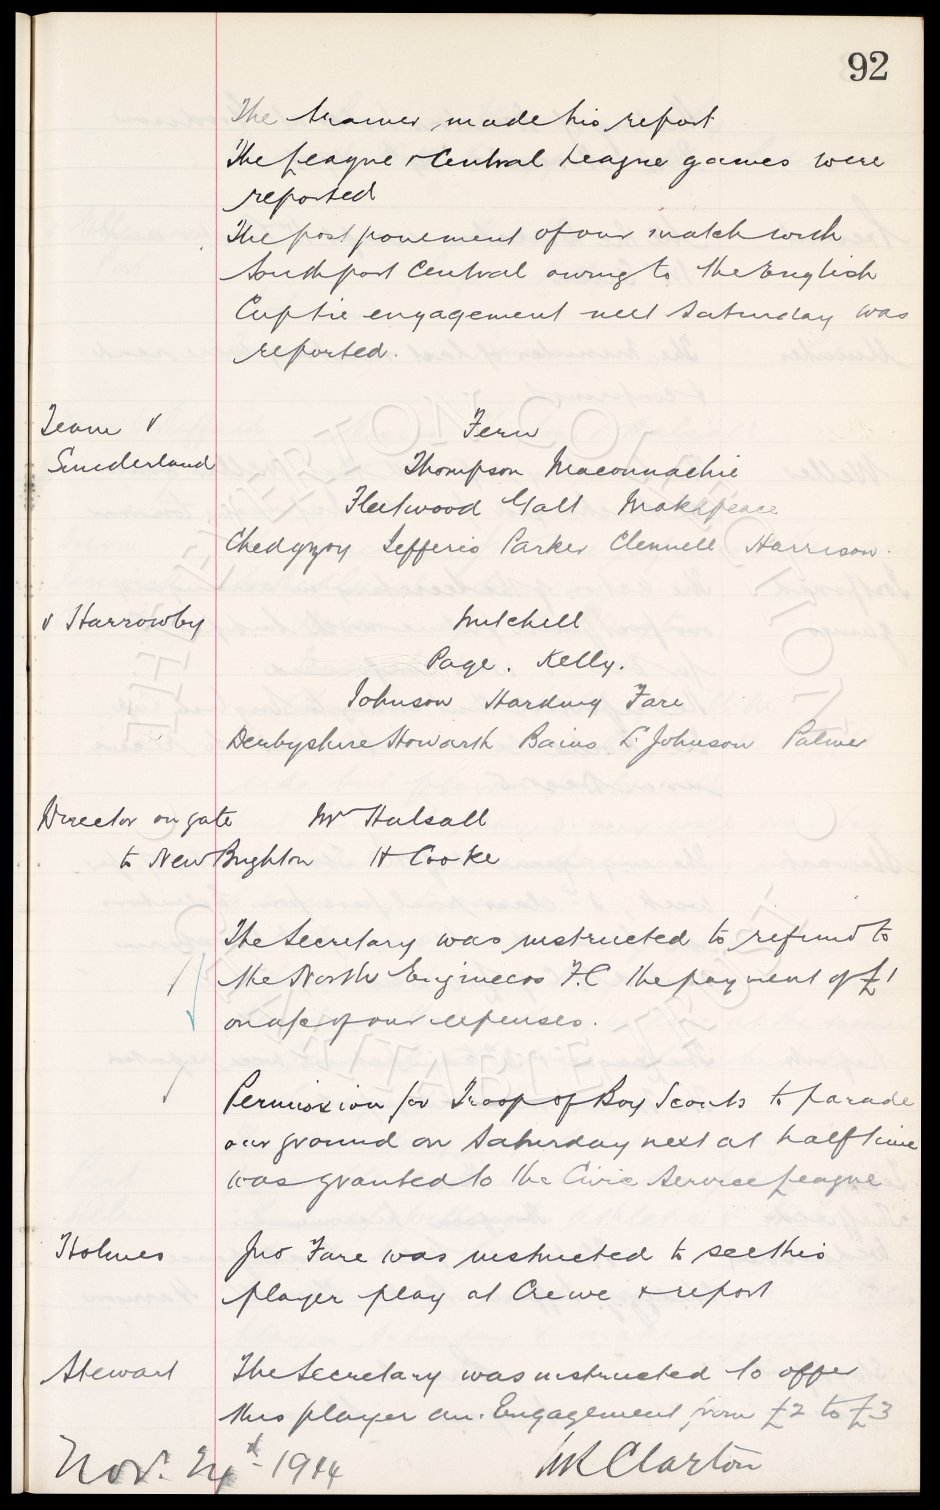 92
The trainer made his report
The League & Central League games were
reported
The postponement of our match with
Southport Central owing to the English
Cup tie engagement next Saturday was
reported.
Team v Fern
Sunderland Thompson Maconnachie
Fleetwood Galt Makepeace
Chedgzoy Jefferis Parker Clennell Harrison.
v Harrowby Mitchell
Page. Kelly.
Johnson Harding Fare
Derbyshire Howarth Bains L. Johnson Palmer
Director on gate Mr Halsall
to New Brighton H Cooke
The Secretary was instructed to refund to
the North Engineers F.C the payment of £1
on a/c of our expenses.
Permission for Troop of Boy Scouts to parade
our ground on Saturday next at half time
was granted to the Civic Service League
Holmes Jno Fare was instructed to see this
player play at Crewe & report
Stewart The Secretary was instructed to offer
this player an. Engagement from £2 to £3
Nov. 1914 Clarton
THE EVERTON COLLECTION
CHARITABLE TRUST